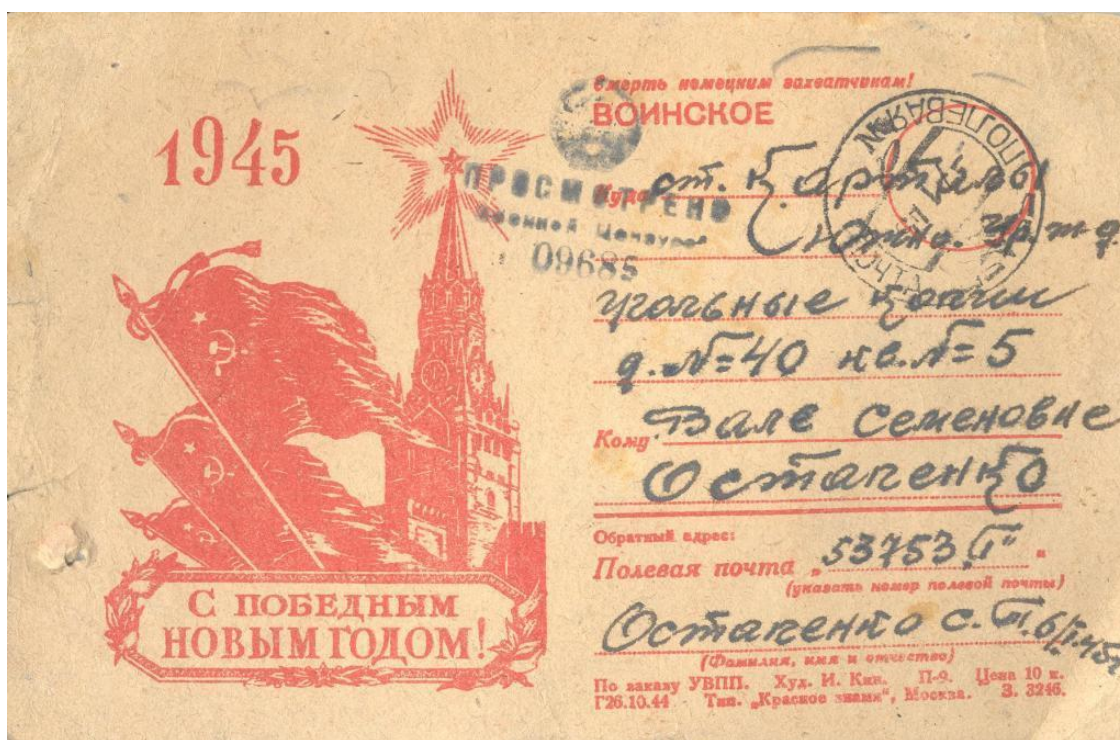 1945
С ПОБЕДНЫМ
НОВЫМ ГОДОМ!
Смерть немецким захватчикам!
ВОИНСКОЕ
ПРОСМОТРЕНО
Военной Цензурой
09685
ПОЛЕВАЯ
Куда ст. Карталы
Южно. Ур. ж-д
угольные копи
д. №=40 кв. №=5
Кому Вале Семеновне
Остапенко
Обратный адрес:
Полевая почта „53753 „Г"
(указать номер полевой почты)
Остапенко С. П. 6/I.45
(Фамилия, имя и отчество)
По заказу УВПП. Худ. И. Кин. П-9. Цена 10 к.
Г26.10.44 Тип. „Красное знамя", Москва. З. 3246.